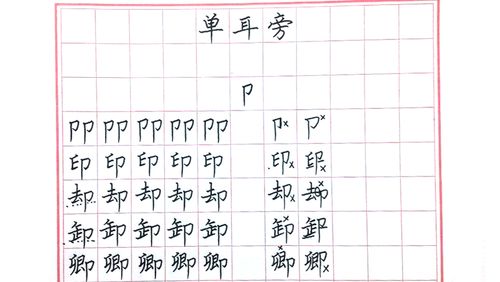 单耳旁
卩
卩卩 卩卩 卩卩 卩卩 卩卩 卩× 卩×
印 印 印 印 印 印× 印×
却 却 却 却 却 却× 却×
卸 卸 卸 卸 卸 卸× 卸
卿 卿 卿 卿 卿 卿× 卿×